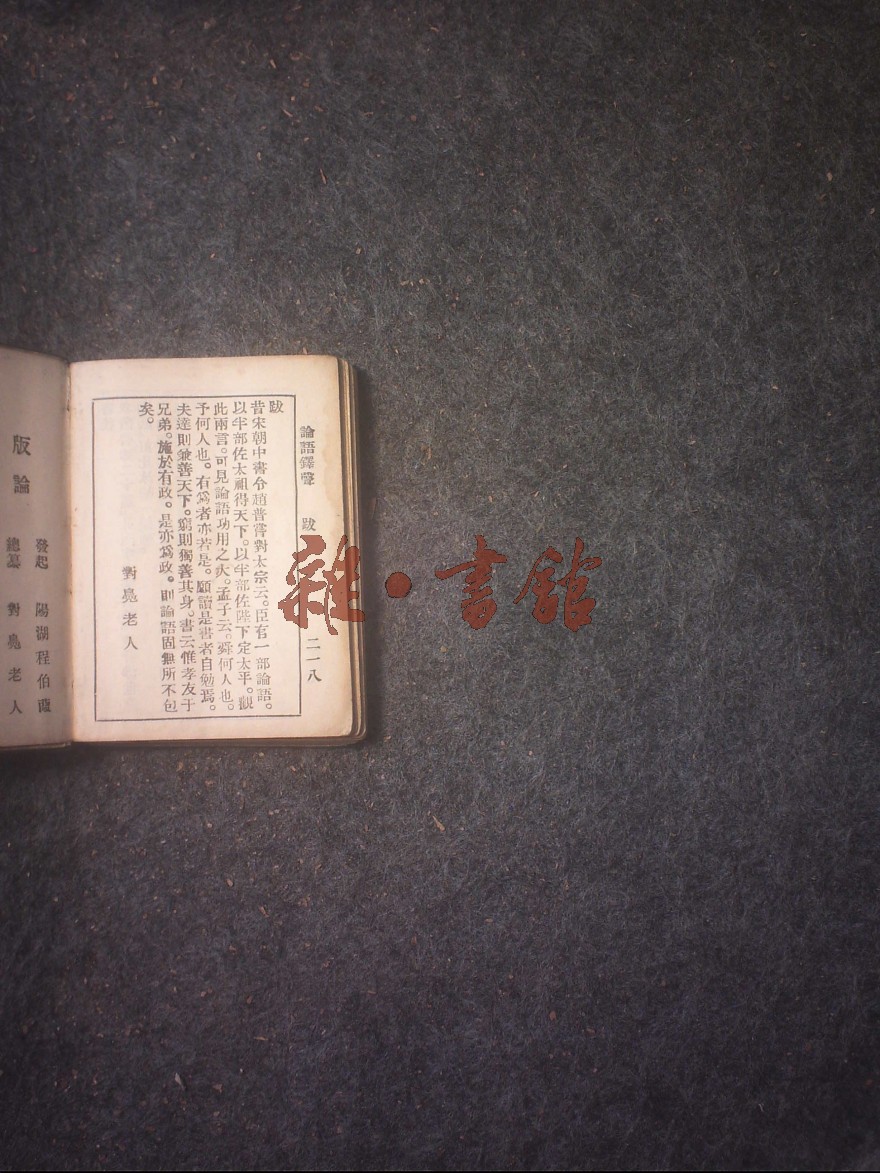 論語鐸聲 跋 二一八
跋
昔宋朝中書令趙普嘗對太宗云。臣有一部論語。
以半部佐太祖得天下。以半部佐陛下定太平。觀
此兩言。可見論語功用之大。孟子云。舜何人也。
予何人也。有爲者亦若是。願讀是書者自勉焉。
夫達則兼善天下。窮則獨善其身。書云惟孝友于
兄弟。施於有政。是亦爲政。則論語固無所不包
矣。
對鳧老人
發起 陽湖程伯葭
總纂 對鳧老人
版 論
雜·書館